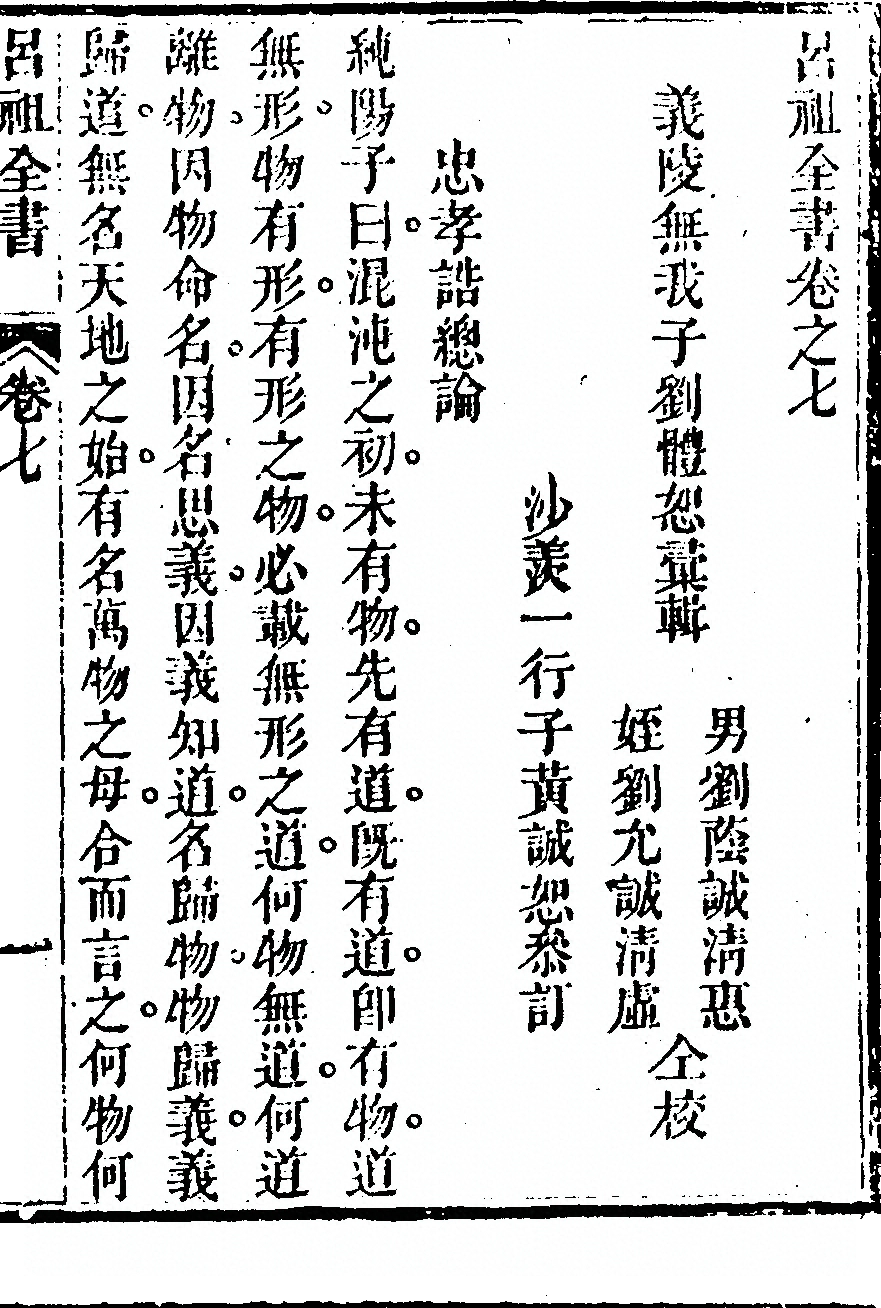 呂祖全書卷之七
義陵無我子劉體恕彙輯
男劉蔭誠淸惠
姪劉允誠淸虛
仝校
沙羨一行子黃誠恕叅訂
忠孝誥總論
純陽子曰。混沌之初。未有物。先有道。旣有道。卽有物。道
無形。物有形。有形之物。必載無形之道。何物無道。何道
離物。因物命名。因名思義。因義知道。名歸物。物歸義。義
歸道。無名天地之始。有名萬物之母。合而言之。何物何
呂祖全書 卷七 一